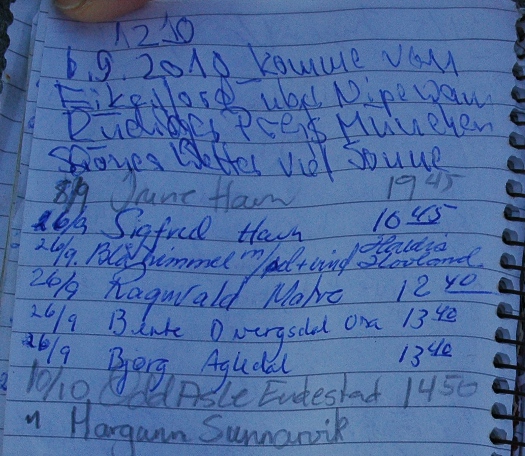 1210
6.9.2010 komme von
Eikemoset über Nipedalen
Rüdiger Preiß München
Schönes Wetter viel Sonne
8/9 June Havn 19 45
26/9 Sigfred Havn 16 45
26/9. Blå himmel m/sol+vind Haldis Hovland
26/9 Ragnvald 12 40
26/9 Bente Dvergsdal 13 40
26/9 Bjørg Agledal 13 40
10/10 Odd Asle Endestad 1450
" Margann Sunnarvik